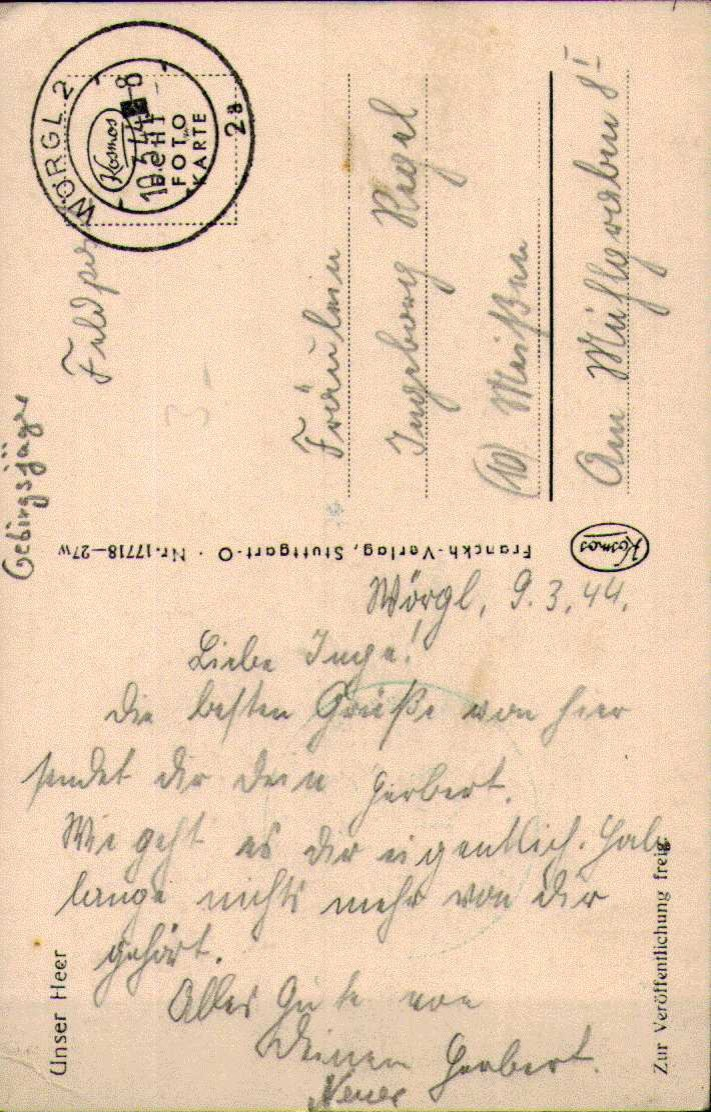 Wörgl, 9.3.44.
Liebe Inge!
Die besten Grüße von hier
sendet dir dein Herbert.
Wie geht es dir eigentlich. Hab
lange nichts mehr von dir
gehört.
Alles Gute von
Deinem Herbert.
Unser Heer
Zur Veröffentlichung freig.
Franckh-Verlag, Stuttgart-O · Nr. 17718—27w
Kosmos
Gebirgsjäger
Feldpost
WÖRGL 2
10.3.44 - 8
2a
Kosmos
ECHT
FOTO
KARTE
3-
Fräulein
Ingeborg
(10) Meißen
Am Mühlgraben 8 I